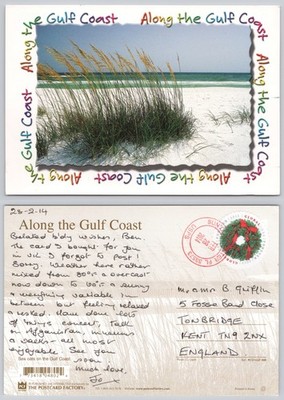 Along the Gulf Coast Along the Gulf Coast
Along the Gulf Coast
Along the Gulf Coast
Along the Gulf Coast Along the Gulf Coast
23-2-14
Along the Gulf Coast
Belated b'day wishes, Ben
the card I bought for you
in UK I forgot to post!
Sorry. Weather here rather
mixed from 80's & overcast
now down to 60's & sunny
& everything variable in
between but feeling relaxed
& rested. Have done lots
of things concert, talk
on Afghanistan, museums
& walks - all most
enjoyable. See you
soon
Much love,
Jo x
Mr & Mrs B Griffin
5 Fosse Bank Close
TONBRIDGE
KENT TN9 2NX
ENGLAND
Sea oats on the Gulf Coast
THE POSTCARD FACTORY